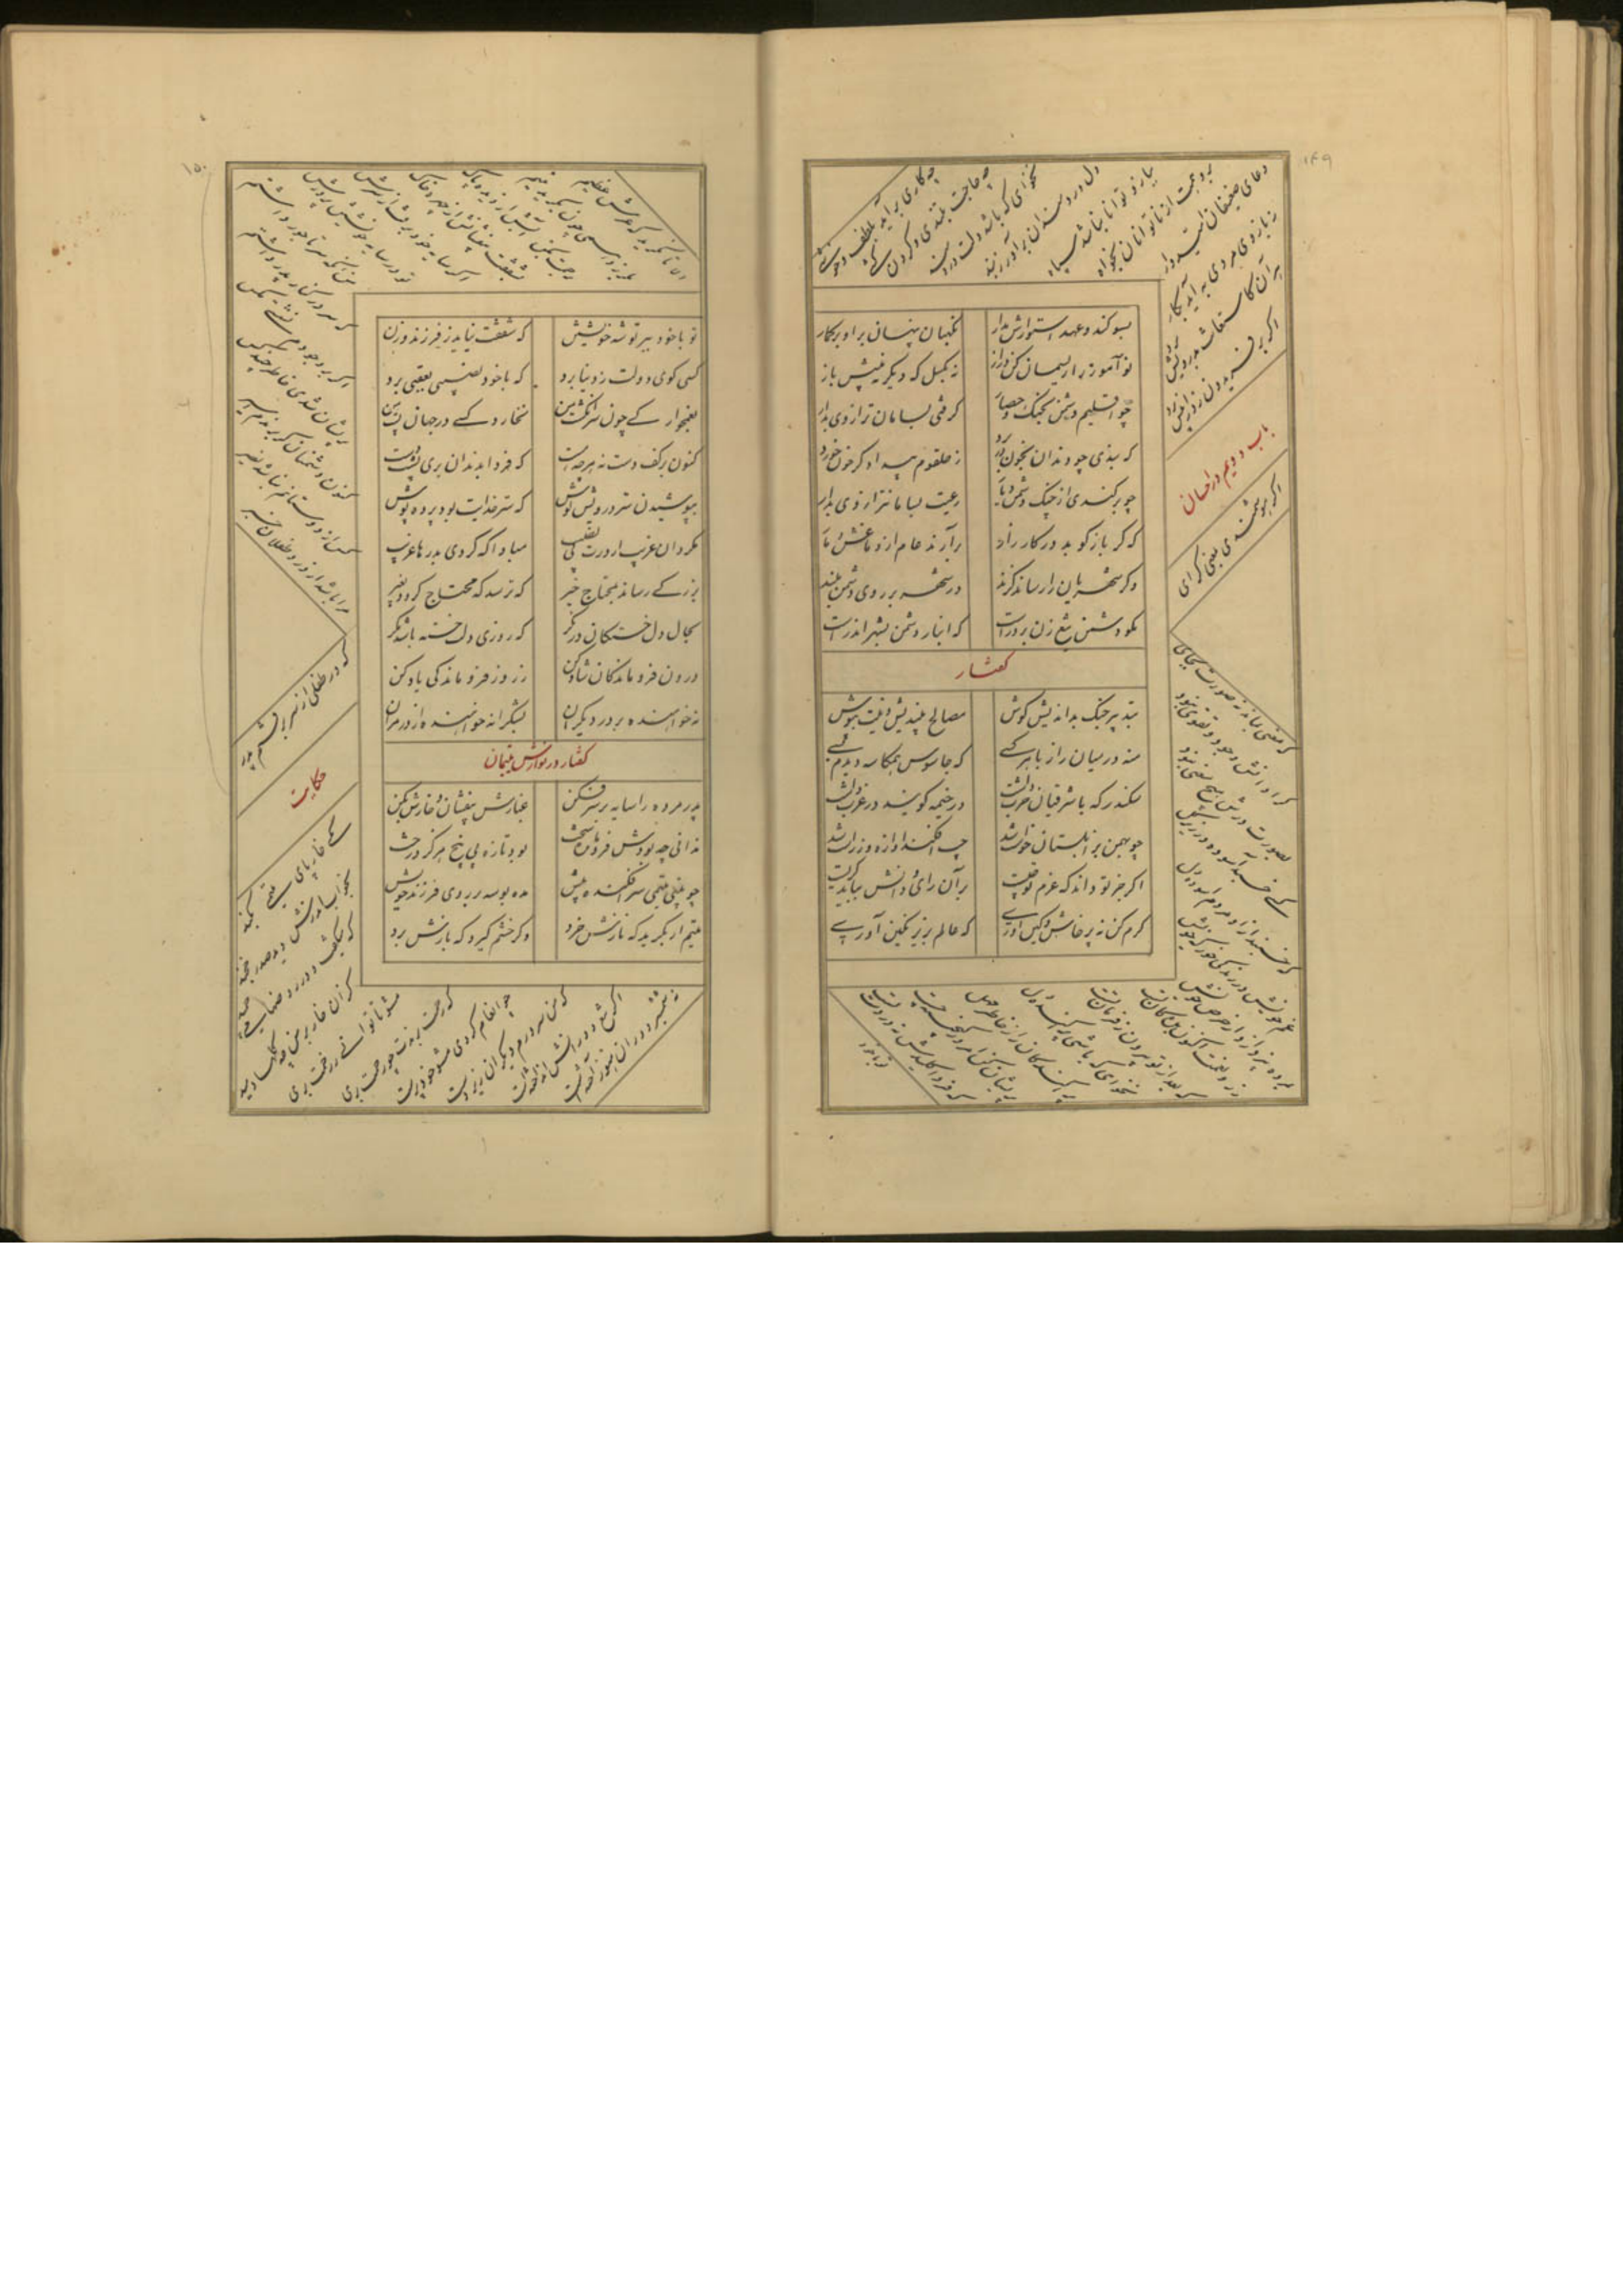 ۱۴۹
بسوکند و عهد استوارش مدار
نکهبان پنهان برو بر کمار
نو آموز را ریسمان کن دراز
نه بکسل که دیکر نبینیش باز
چو اقلیم دشمن بجنک و حصار
کرفتی بسامان ترازوی بدار
که بندی چو دندان بخون در برد
ز حلقوم بیدادکر خون خورد
چو برکندی از چنک دشمن دیار
رعیت بسامان‌تر از وی بدار
که کر باز کوبد در کارزار
برآرند عام از دماغش دمار
وکر شهریان را رساند کزند
در شهر بر روی دشمن مبند
مکو دشمن تیغ زن بر درست
که انباز دشمن بشهر اندرست
کفتار
بتدبیر جنک بداندیش کوش
مصالح بیندیش و نیت بپوش
منه در میان راز با هر کسی
که جاسوس همکاسه دیدم بسی
سکندر که با شرقیان حرب داشت
در خیمه کویند در غرب داشت
چو بهمن بزابلستان خواست شد
چپ افکند آوازه و از راست شد
اکر جز تو داند که عزم تو چیست
بر آن رای و دانش بباید کریست
کرم کن نه پرخاش و کین آوری
که عالم بزیر نکین آوری
چه کاری برآید بلطف و خوشی
چه حاجت بتندی و کردن کشی
نخواهی که باشد دلت دردمند
دل دردمندان برآور ز بند
ببازو توانا نباشد سپاه
برو همت از ناتوانان بخواه
دعای ضعیفان امیدوار
ز بازوی مردی به آید بکار
هر آن کاستعانت بدرویش برد
اکر بر فریدون زد از پیش برد
باب دویم در احسان
اکر هوشمندی بمعنی کرای
که معنی بماند نه صورت بجای
کرا دانش و جود و تقوی نبود
بصورت درش هیچ معنی نبود
کسی خسبد آسوده در زیر کل
که خسبند ازو مردم آسوده دل
غم خویش در زندکی خور که خویش
بمرده نپردازد از حرص خویش
زر و نعمت اکنون بده کان تست
که بعد از تو بیرون ز فرمان تست
نخواهی که باشی پراکنده دل
پراکندکان را ز خاطر مهل
پریشان کن امروز کنجینه چست
که فردا کلیدش نه در دست تست
تو با خود
۱۵۰
تو با خود ببر توشه خویشتن
که شفقت نیاید ز فرزند و زن
کسی کوی دولت ز دنیا برد
که با خود نصیبی بعقبی برد
بغمخوارکی چون سرانکشت من
نخارد کسی در جهان پشت من
کنون بر کف دست نه هر چه هست
که فردا بدندان بری پشت دست
بپوشیدن ستر درویش کوش
که ستر خدایت بود پرده پوش
مکردان غریب از درت بی نصیب
مبادا که کردی بدرها غریب
بزرکی رساند بمحتاج خیر
که ترسد که محتاج کردد بغیر
بحال دل خستکان در نکر
که روزی دلی خسته باشد مکر
درون فروماندکان شاد کن
ز روز فروماندکی یاد کن
نه خواهنده بر در دیکران
بشکرانه خواهنده از در مران
کفتار در نوازش یتیمان
پدر مرده را سایه بر سر فکن
غبارش بیفشان و خارش بکن
ندانی چه بودش فرومانده سخت
بود تازه بی بیخ هرکز درخت
چو بینی یتیمی سر افکنده پیش
مده بوسه بر روی فرزند خویش
یتیم ار بکرید که نازش خرد
وکر خشم کیرد که بارش برد
الا تا نکرید که عرش عظیم
بلرزد همی چون بکرید یتیم
برحمت بکن آبش از دیده پاک
بشفقت بیفشانش از چهره خاک
اکر سایه خود برفت از سرش
تو در سایه خویشتن پرورش
من آنکه سر تاجور داشتم
که سر در کنار پدر داشتم
اکر بر وجودم نشستی مکس
پریشان شدی خاطر چند کس
کنون دشمنان کر برندم اسیر
کس از دوستانم نباشد نصیر
مرا باشد از درد طفلان خبر
که در طفلی از سر برفتم پدر
حکایت
یکی خار پای یتیمی بکند
بخواب اندرش دید صدر خجند
که میکفت و در روضها میچمید
کزان خار بر من چه کلها دمید
مشو تا توانی ز رحمت بری
که رحمت برندت چو رحمت بری
چو انعام کردی مشو خودپرست
که من سرورم دیکران زیردست
اکر تیغ دورانش انداختست
نه شمشیر دوران هنوز آختست